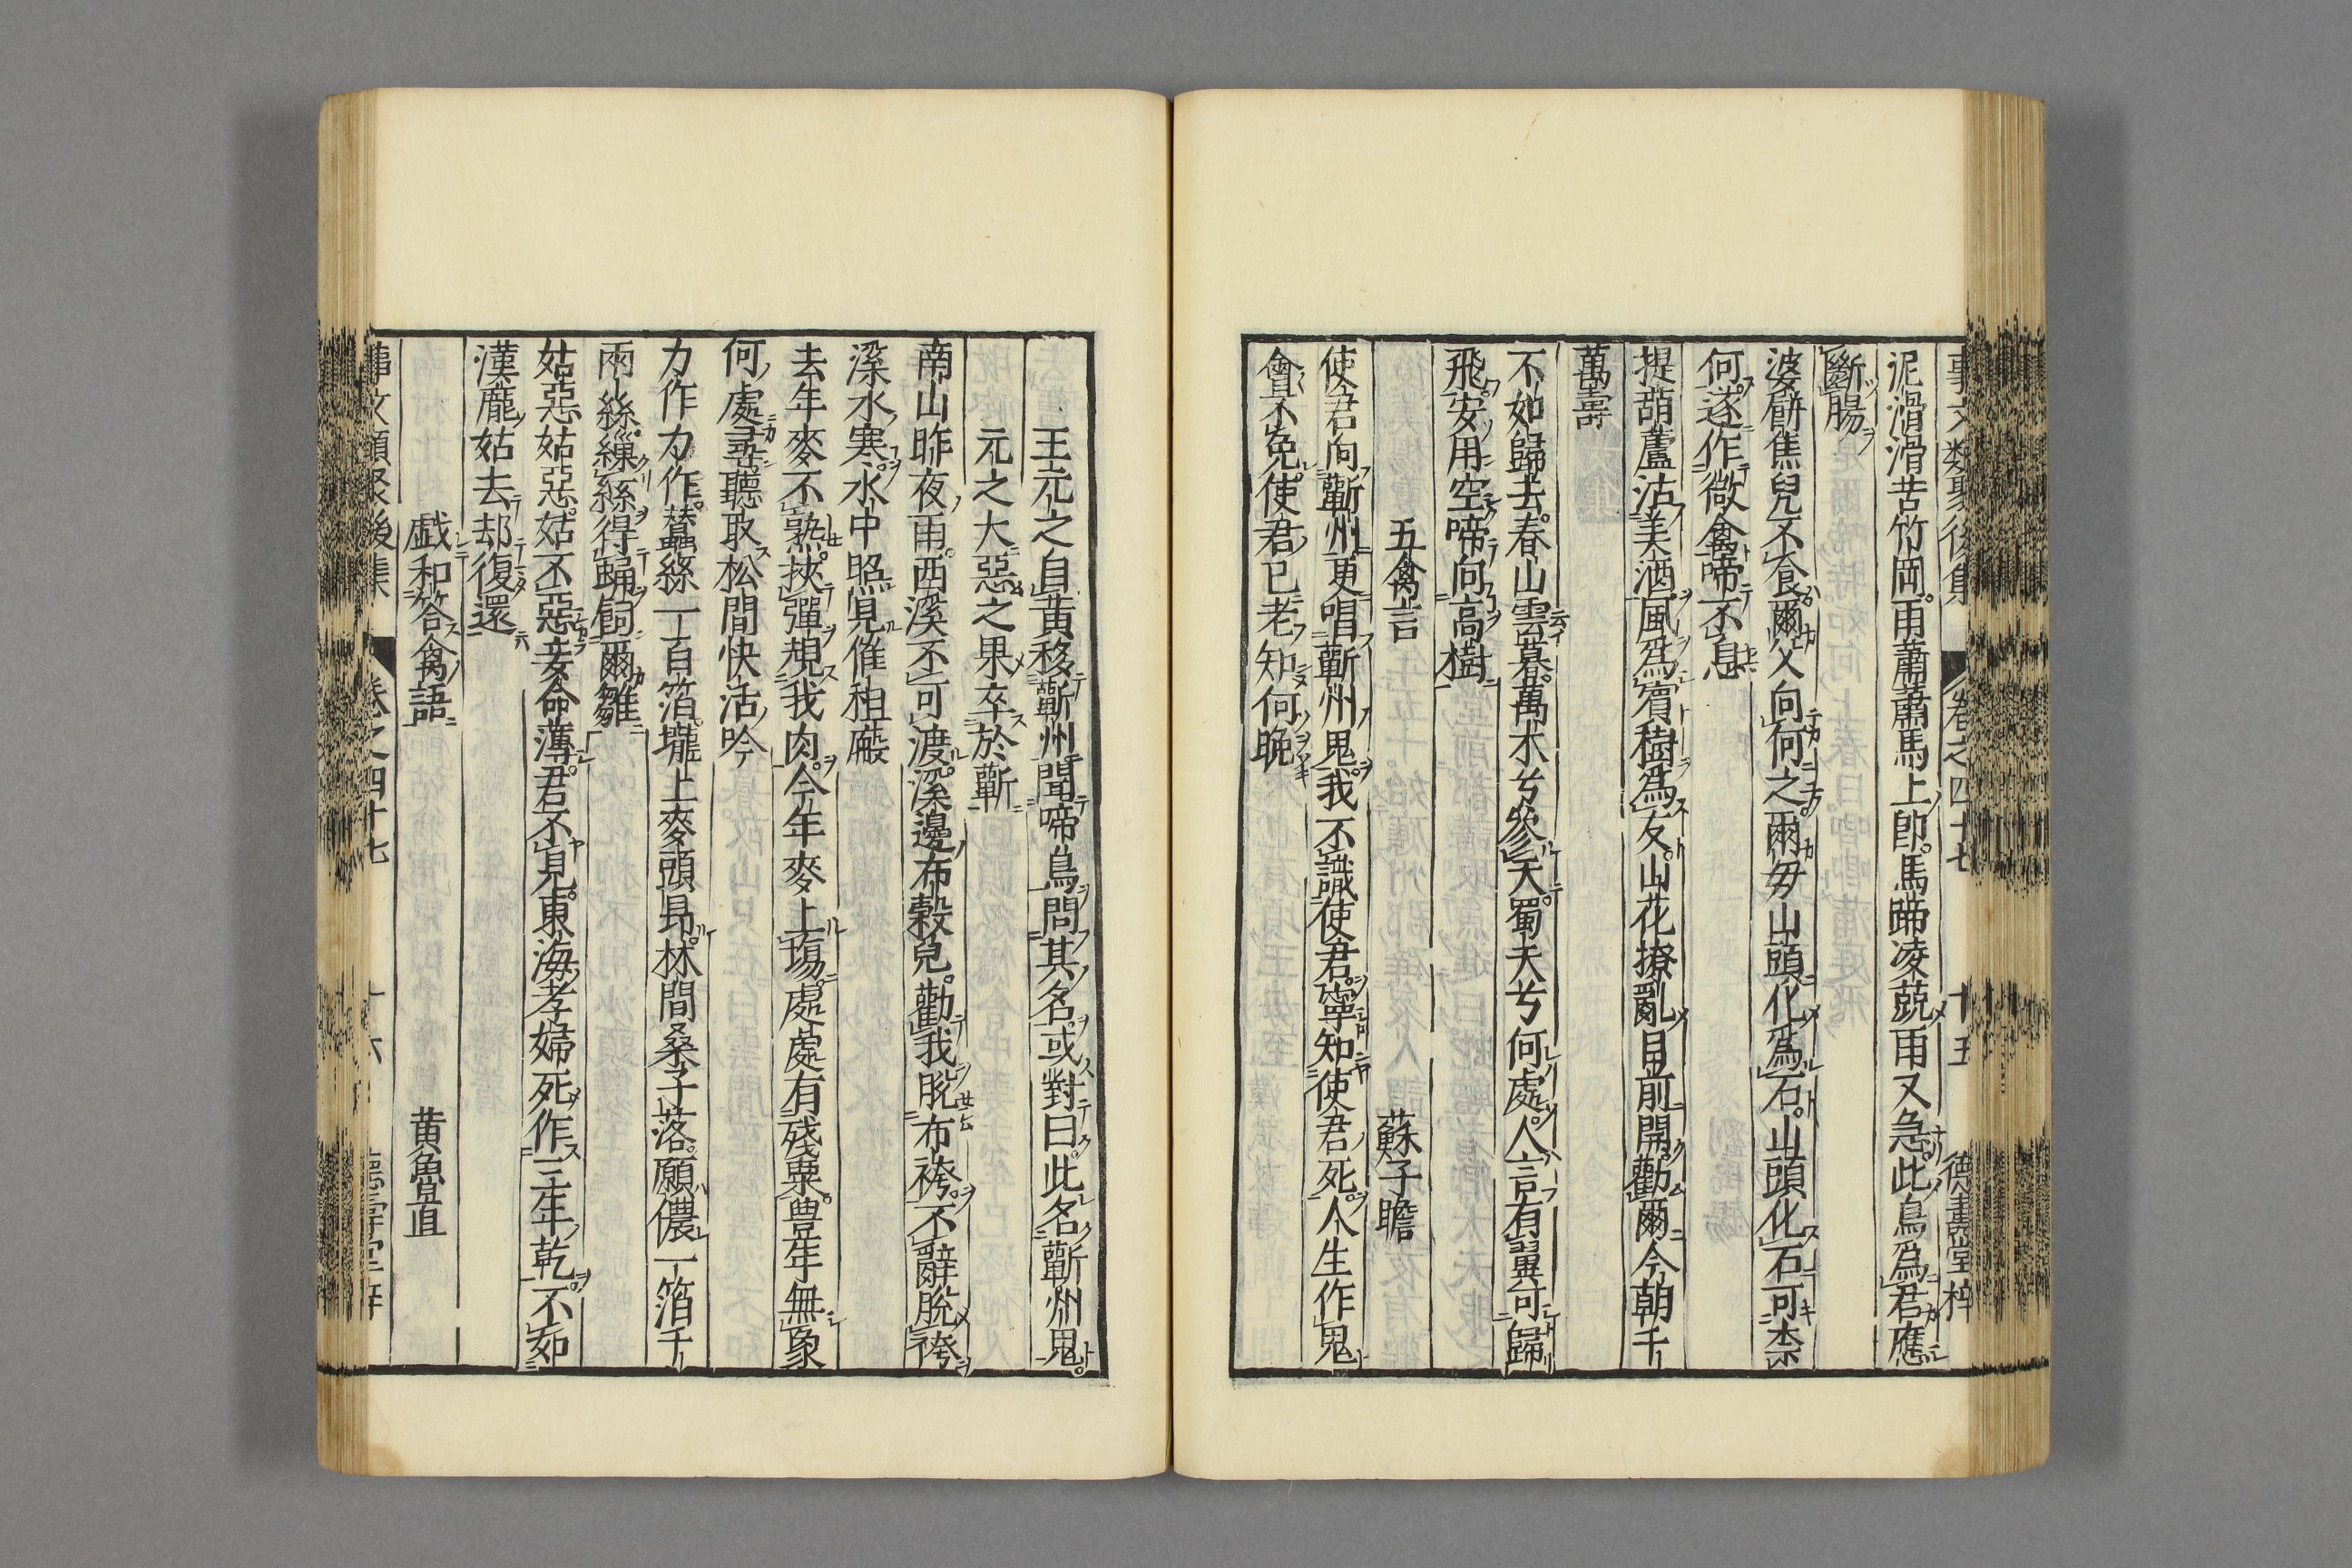 事文類聚後集 卷之四十七 十五 德壽堂梓
泥滑滑苦竹岡雨蕭蕭馬上郎馬蹄凌兢雨又急此鳥爲君應
斷腸
婆餅焦兒不食爾父向何之爾母山頭化爲石山頭化石可柰
何遂作微禽啼不息
提葫蘆沽美酒風爲賓樹爲友山花撩亂目前開勸爾今朝千
萬壽
不如歸去春山雲暮萬木兮參天蜀天兮何處人言有翼可歸
飛安用空啼向高樹
五禽言 蘇子瞻
使君向蘄州更唱蘄州鬼我不識使君寧知使君死人生作鬼
會不免使君已老知何晩
王元之自黃移蘄州聞啼鳥問其名或對曰此名蘄州鬼
元之大惡之果卒於蘄
南山昨夜雨西溪不可渡溪邊布穀兒勸我脫布袴不辭脫袴
溪水寒水中照見催租瘢
去年麥不熟挾彈規我肉今年麥上場處處有殘粟豊年無象
何處尋聽取松間快活吟
力作力作蠶絲一百箔壠上麥頭昻林間桑子落願儂一箔千
兩絲繰絲得蛹飼爾雛
姑惡姑惡姑不惡妾命薄君不見東海孝婦死作三年乾不如
漢龐姑去却復還
戯和答禽語 黄魯直
事文類聚後集 卷之四十七